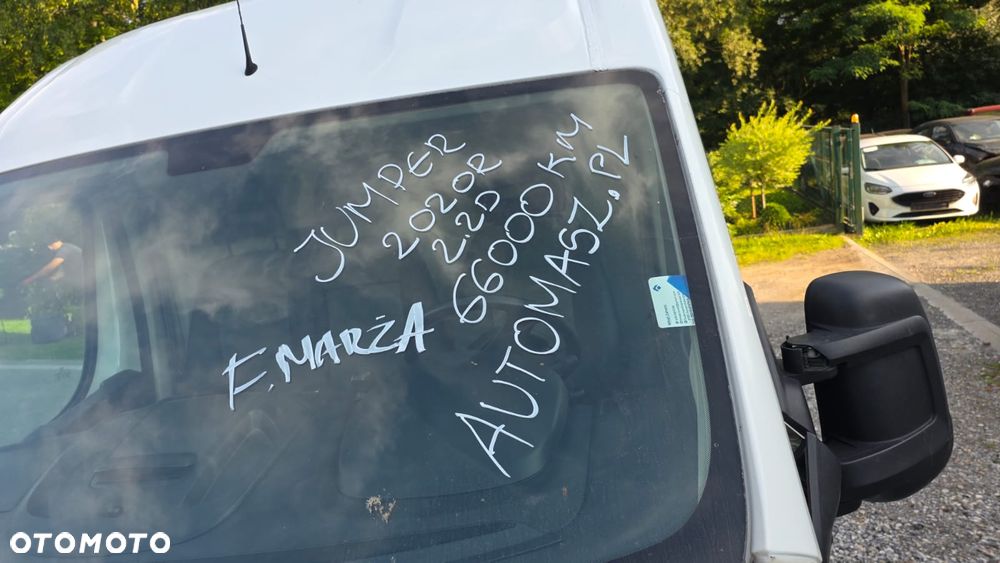 JUMPER
2020R
2.2D
66000KM
AUTOMASZ.PL
F.MARŻA
OTOMOTO